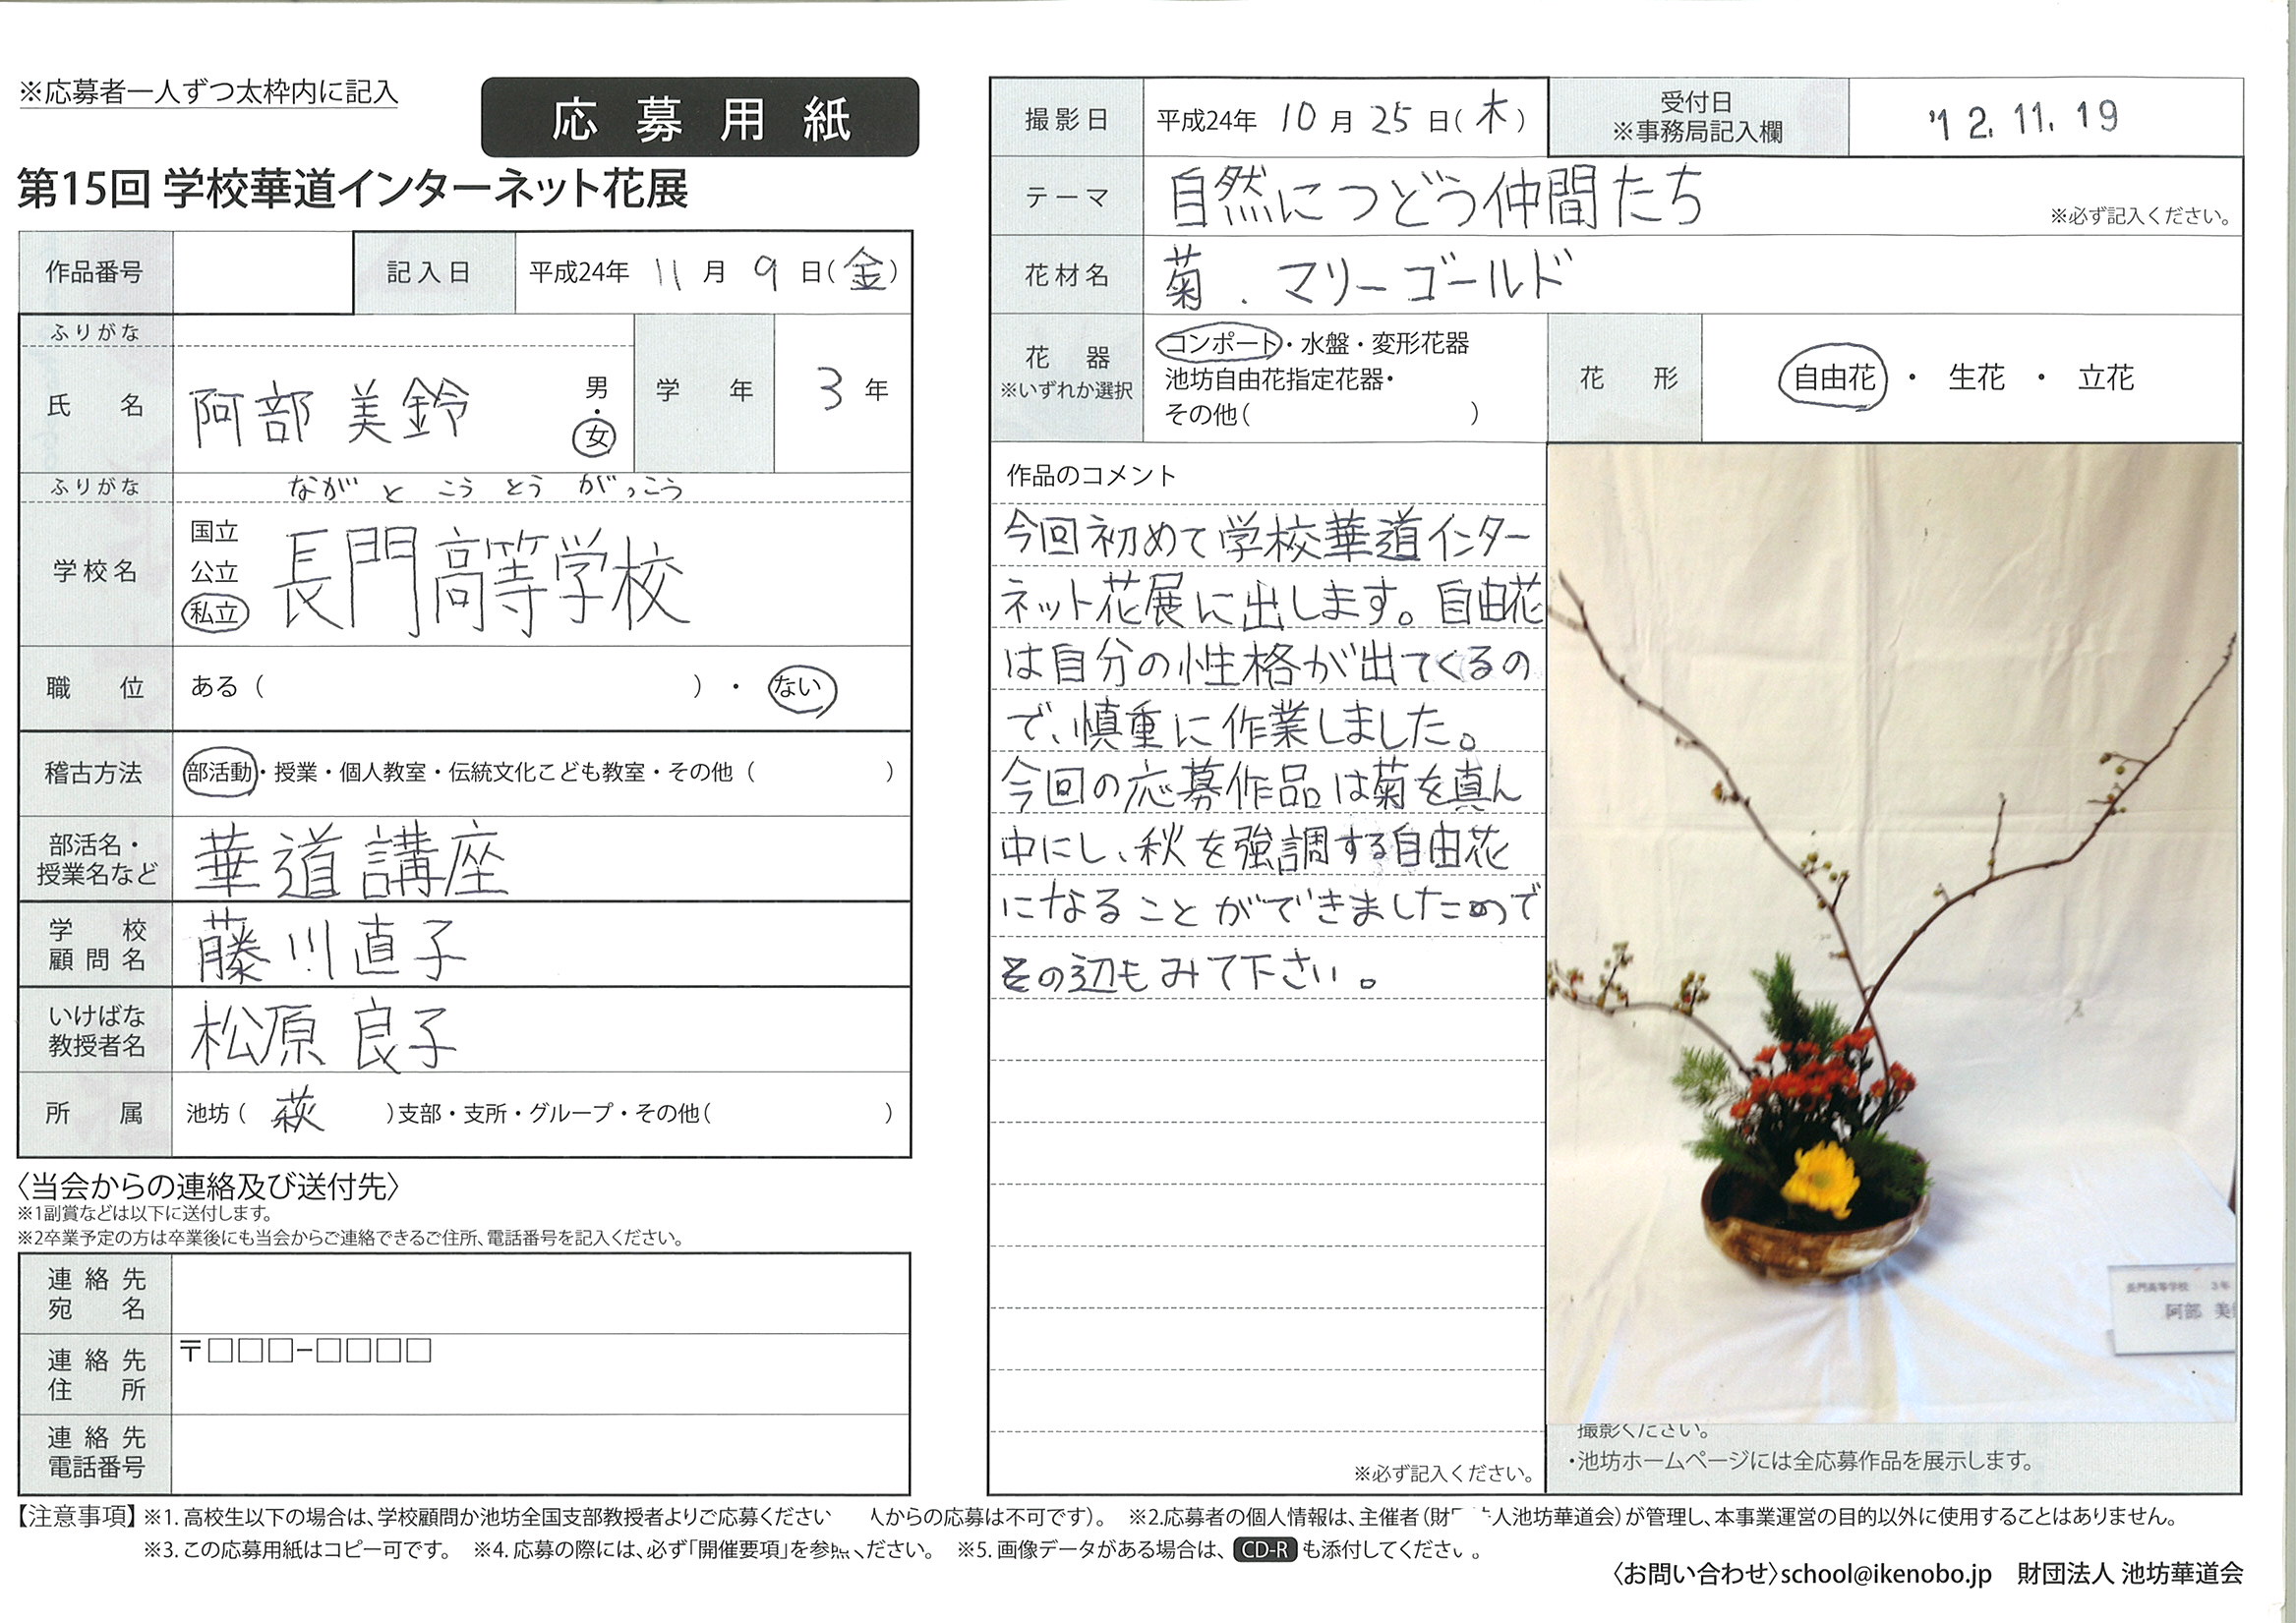 ※応募者一人ずつ太枠内に記入
応募用紙
第15回 学校華道インターネット花展
作品番号
記入日 平成24年 11月 9日(金)
ふりがな
氏名 阿部 美鈴 男・女
学年 3年
ふりがな ながと こうとうがっこう
学校名 国立 公立 私立 長門高等学校
職位 ある( )・ない
稽古方法 部活動・授業・個人教室・伝統文化こども教室・その他( )
部活名・授業名など 華道講座
学校顧問名 藤川直子
いけばな教授者名 松原良子
所属 池坊(萩)支部・支所・グループ・その他( )
〈当会からの連絡及び送付先〉
※1副賞などは以下に送付します。
※2卒業予定の方は卒業後にも当会からご連絡できるご住所、電話番号を記入ください。
連絡先宛名
連絡先住所 〒□□□-□□□□
連絡先電話番号
撮影日 平成24年 10月 25日(木)
受付日 ※事務局記入欄 '12.11.19
テーマ 自然につどう仲間たち ※必ず記入ください。
花材名 菊.マリーゴールド
花器 ※いずれか選択 コンポート・水盤・変形花器
池坊自由花指定花器・
その他( )
花形 自由花・生花・立花
作品のコメント
今回初めて学校華道インター
ネット花展に出します。自由花
は自分の性格が出てくるの
で、慎重に作業しました。
今回の応募作品は菊を真ん
中にし、秋を強調する自由花
になることができましたので
その辺もみて下さい。
※必ず記入ください。
長門高等学校 3年
阿部 美
撮影ください。
・池坊ホームページには全応募作品を展示します。
【注意事項】※1.高校生以下の場合は、学校顧問か池坊全国支部教授者よりご応募ください 人からの応募は不可です)。 ※2.応募者の個人情報は、主催者(財 人池坊華道会)が管理し、本事業運営の目的以外に使用することはありません。
※3.この応募用紙はコピー可です。 ※4.応募の際には、必ず「開催要項」を参照ください。 ※5.画像データがある場合は、CD-Rも添付してください。
〈お問い合わせ〉school@ikenobo.jp 財団法人 池坊華道会